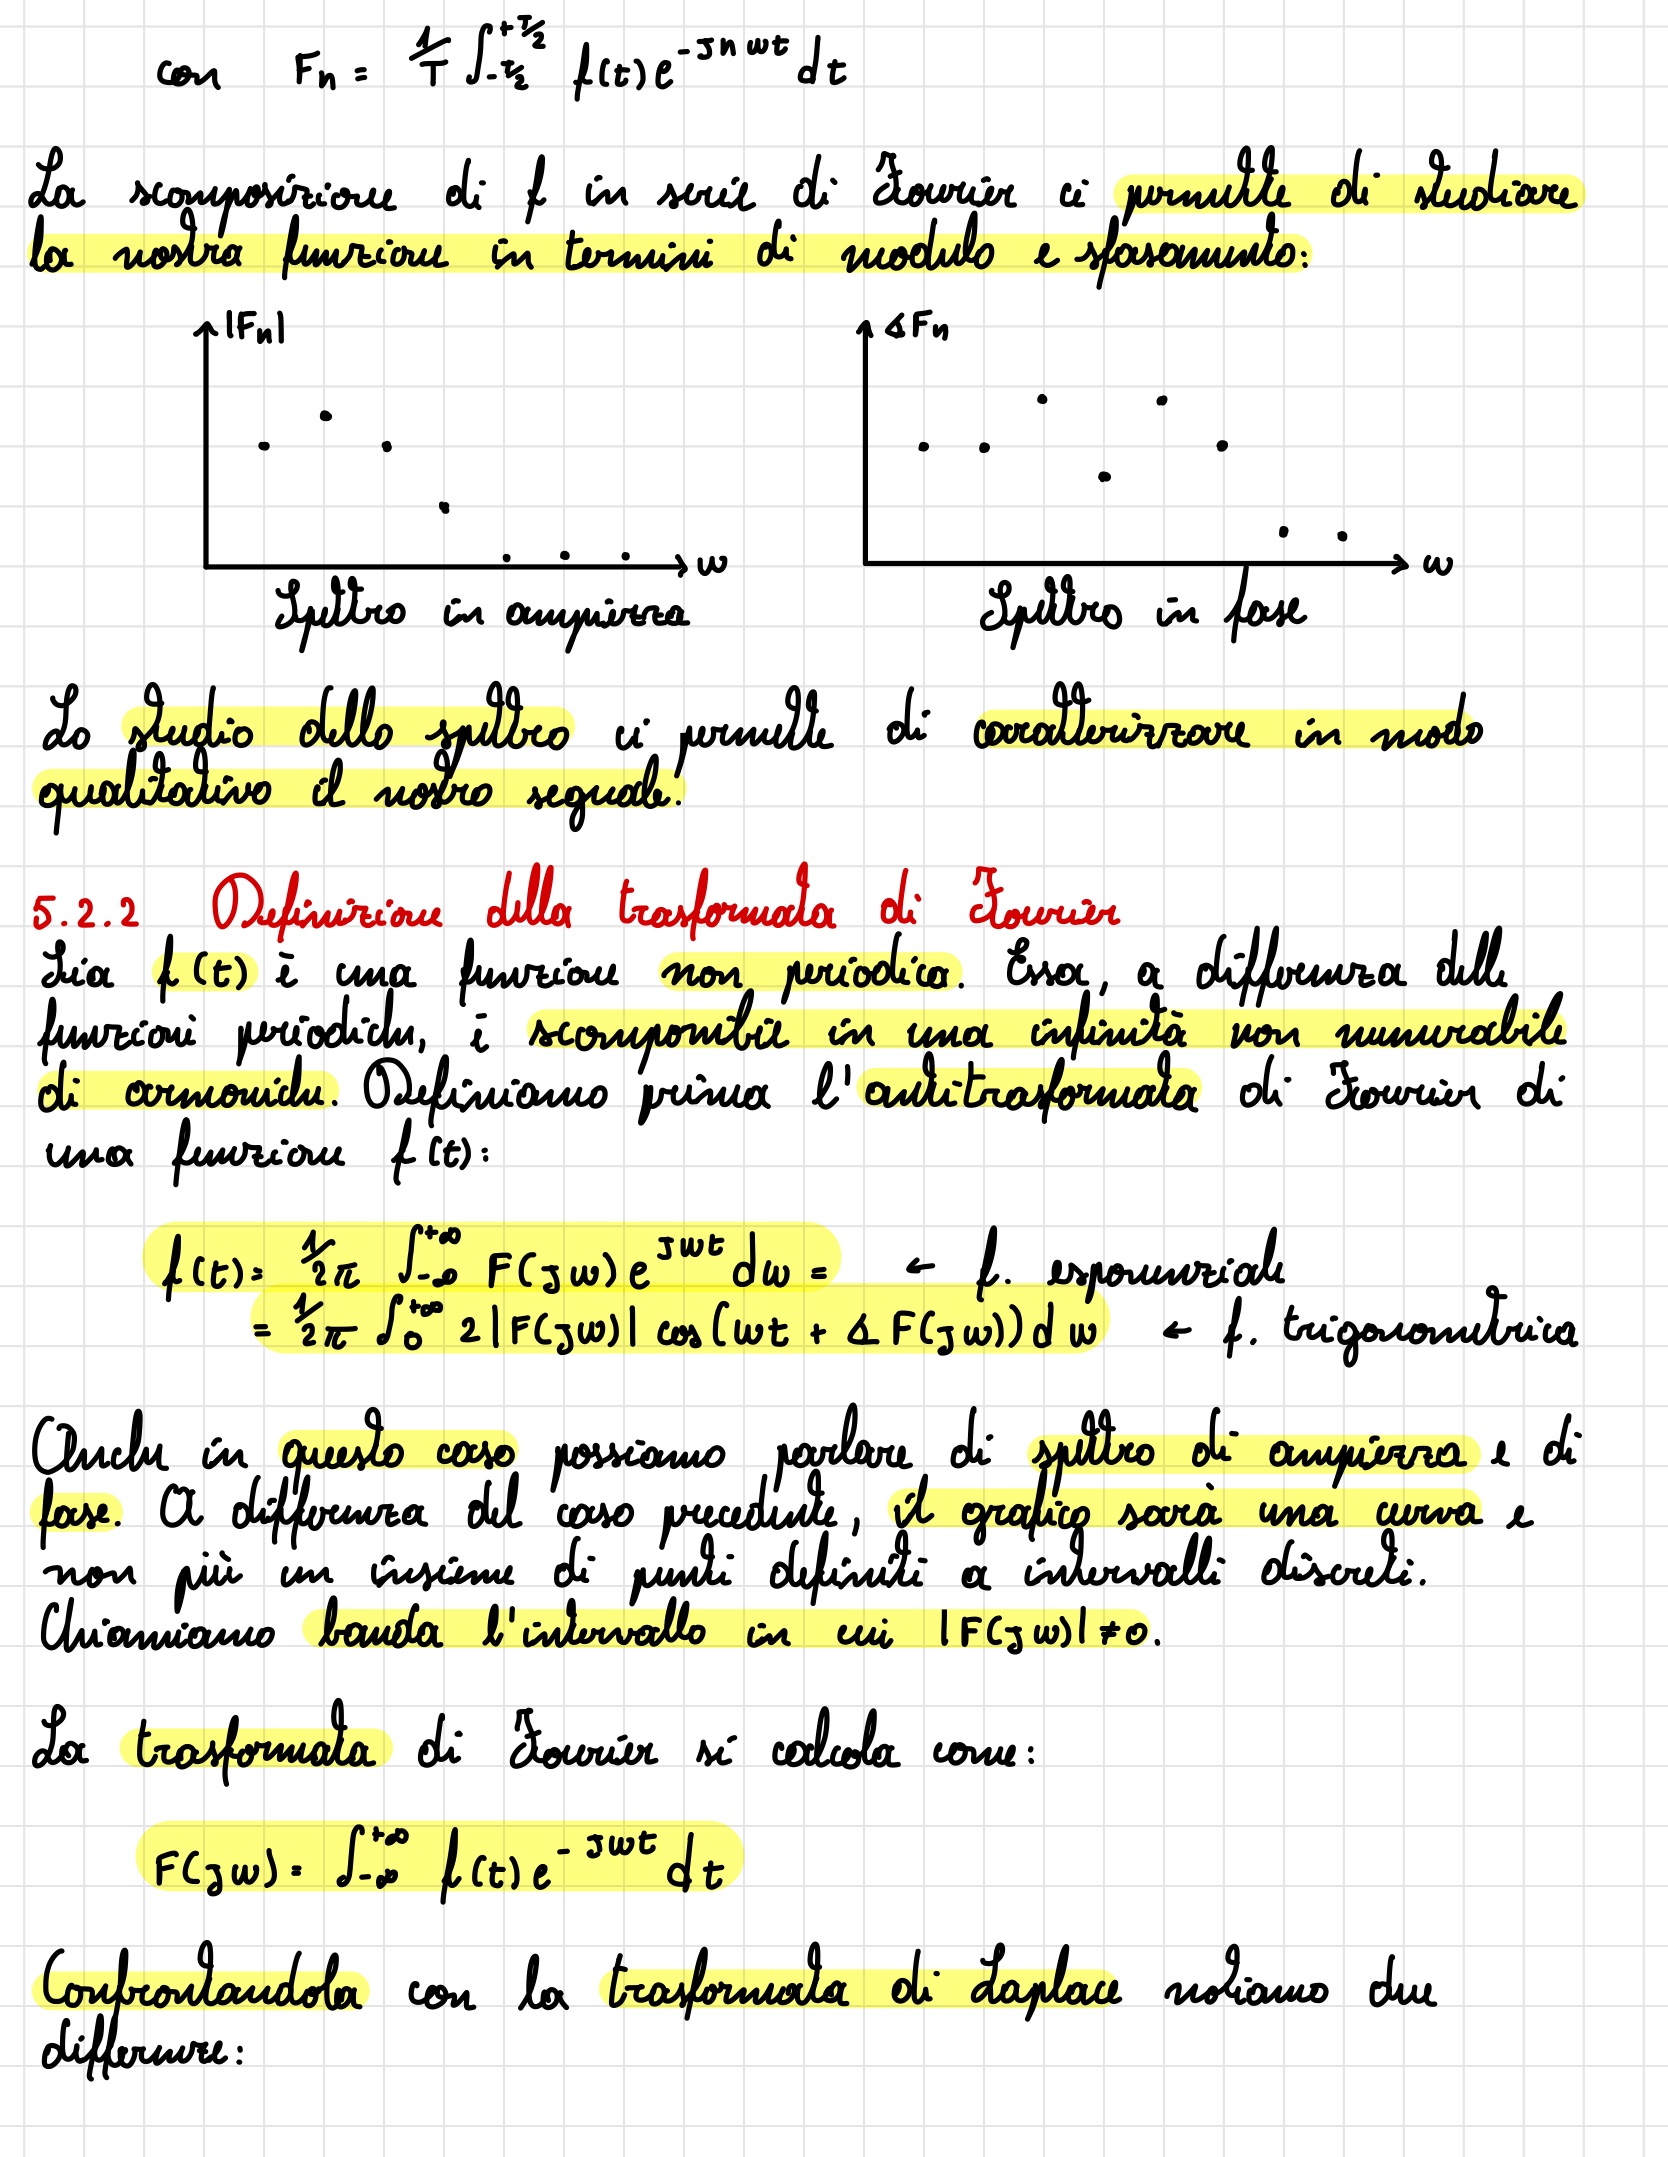 con Fn = 1/T ∫-T/2 +T/2 f(t) e^-jnωt dt
La scomposizione di f in serie di Fourier ci permette di studiare
la nostra funzione in termini di modulo e sfasamento:
|Fn| ∡Fn
ω ω
Spettro in ampiezza Spettro in fase
Lo studio dello spettro ci permette di caratterizzare in modo
qualitativo il nostro segnale.
5.2.2 Definizione della trasformata di Fourier
Sia f(t) è una funzione non periodica. Essa, a differenza delle
funzioni periodiche, è scomponibile in una infinità non numerabile
di armoniche. Definiamo prima l'antitrasformata di Fourier di
una funzione f(t):
f(t) = 1/2π ∫-∞ +∞ F(jω) e^jωt dω = ← f. esponenziale
= 1/2π ∫0 +∞ 2|F(jω)| cos(ωt + ∡F(jω)) dω ← f. trigonometrica
Anche in questo caso possiamo parlare di spettro di ampiezza e di
fase. A differenza del caso precedente, il grafico sarà una curva e
non più un insieme di punti definiti a intervalli discreti.
Chiamiamo banda l'intervallo in cui |F(jω)| ≠ 0.
La trasformata di Fourier si calcola come:
F(jω) = ∫-∞ +∞ f(t) e^-jωt dt
Confrontandola con la trasformata di Laplace notiamo due
differenze: